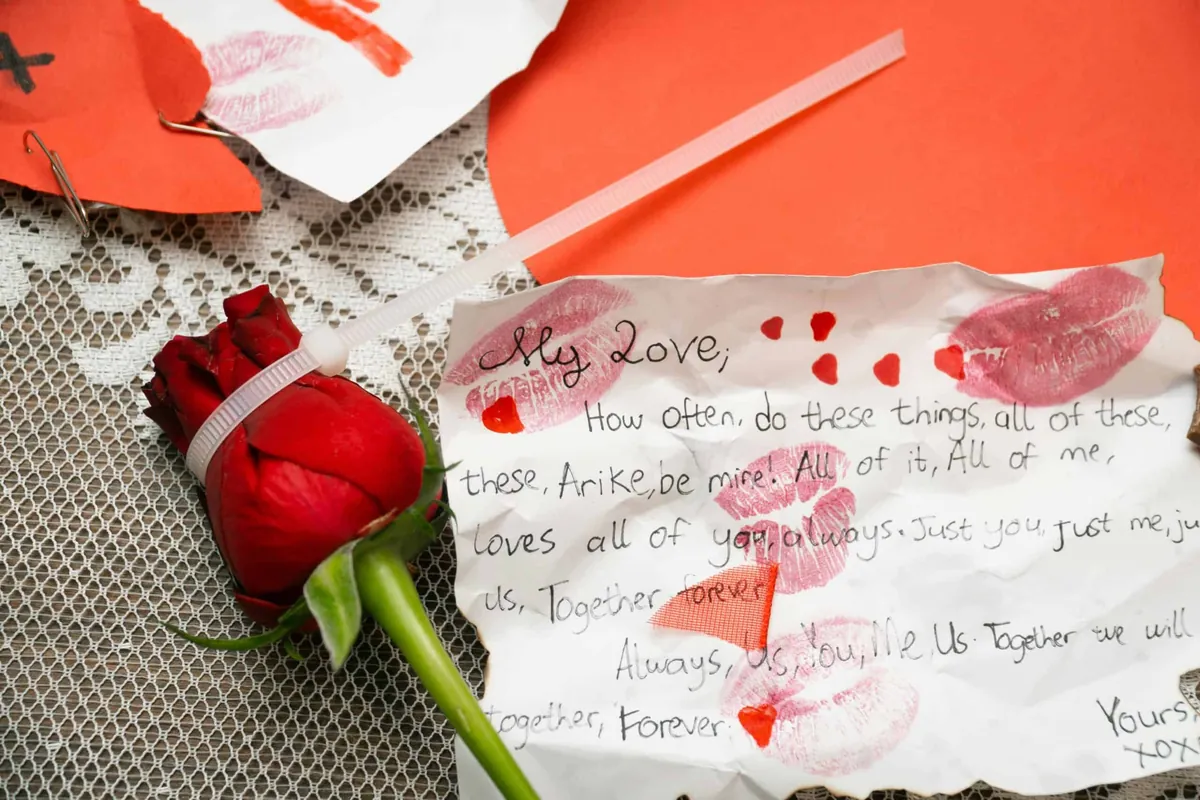 X
My Love,
How often, do these things, all of these,
these, Arike, be mine! All of it, All of me,
loves all of you, always. Just you, just me, ju
us, Together forever
Always, Us, You, Me, Us. Together we will
together, Forever.
Yours,
xox